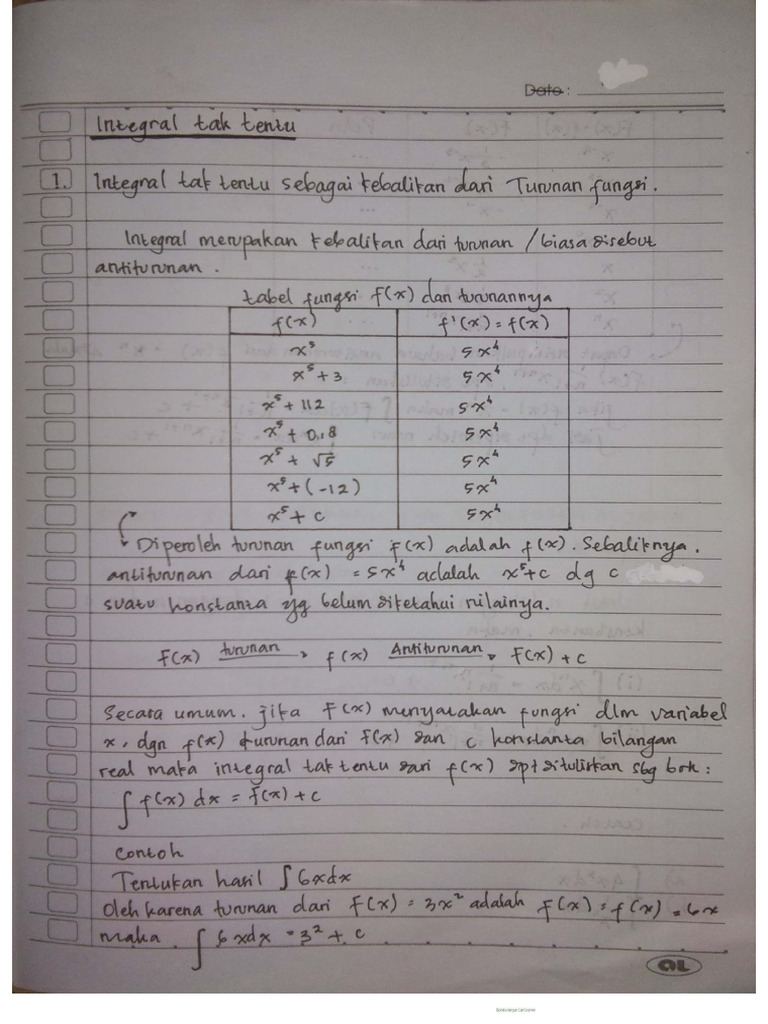 Date :
Integral tak tentu
1. Integral tak tentu sebagai kebalikan dari Turunan fungsi.
Integral merupakan kebalikan dari turunan / biasa disebut
antiturunan.
tabel fungsi F(x) dan turunannya
f(x) f'(x) = f(x)
x⁵ 5x⁴
x⁵ + 3 5x⁴
x⁵ + 112 5x⁴
x⁵ + 0,8 5x⁴
x⁵ + √5 5x⁴
x⁵ + (-12) 5x⁴
x⁵ + c 5x⁴
Diperoleh turunan fungsi F(x) adalah f(x). Sebaliknya,
antiturunan dari f(x) = 5x⁴ adalah x⁵+c dg c
suatu konstanta yg belum diketahui nilainya.
F(x) turunan → f(x) Antiturunan → F(x) + c
Secara umum, jika F(x) menyatakan fungsi dlm variabel
x, dgn f(x) turunan dari F(x) dan c konstanta bilangan
real maka integral tak tentu dari f(x) dpt dituliskan sbg brk :
∫ f(x) dx = F(x) + c
contoh
Tentukan hasil ∫ 6xdx
Oleh karena turunan dari F(x) = 3x² adalah F(x) = f(x) = 6x
maka, ∫ 6xdx = 3² + c
QL